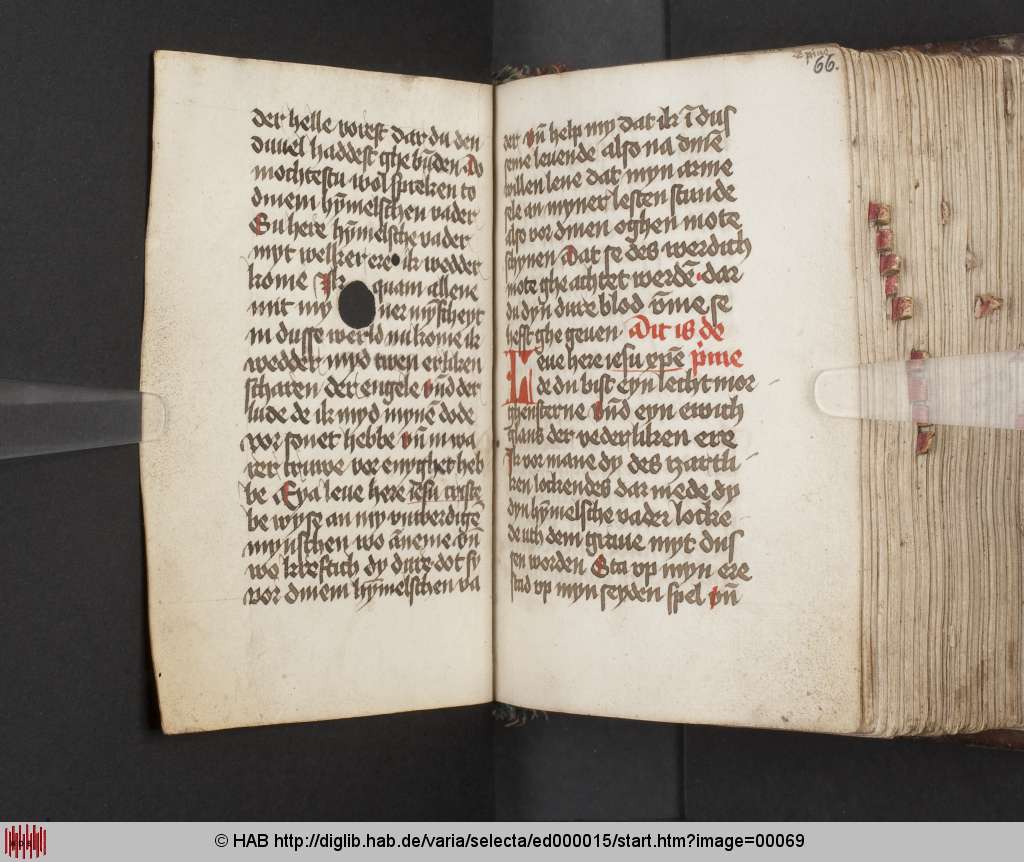 der helle vorest dar du den
duuel haddest ghe bu̅den Do
mochtestu wol spreken to
dinem hy̅melschen vader
Su here hy̅melsche vader
myt welker ere ik wedder
kome Ik quam allene
mit my ner mynscheyt
in dusse werld nu kome ik
wedder myd twen erliken
scharen der engele vnd der
lude de ik myd myne̅ dode
vor sonet hebbe vn̅ in wa
rer truwe vor enyghet heb
be Eya leue here ie̅su criste
be wyse an my vnwerdige̅
mynschen wo a̅neme vn̅
wo kreftich dy dure dot sy
vor dinem hy̅melschen va
66.
der vn̅ help my dat ik i̅ dus
seme leuende also na dine̅
willen leue dat myn arme
sele an myner lesten stunde
also vor dinen oghen mote
schynen Dat se des werdich
mote ghe achtet werde̅ dar
du dyn dure blod v̅me se
hefft ghe geuen Dit is de
Leue here iesu xpe̅ p̅me
de du bist eyn lecht mor
ghensterne Vnd eyn ewich
glans der vederliken ere
Ik vor mane dy des zartli
ken lockendes dar mede dy
dyn hy̅melsche vader locke
de uth dem graue myt dus
sen worden Sta vp myn ere
stad vp myn seyden spel vn̅
© HAB http://diglib.hab.de/varia/selecta/ed000015/start.htm?image=00069